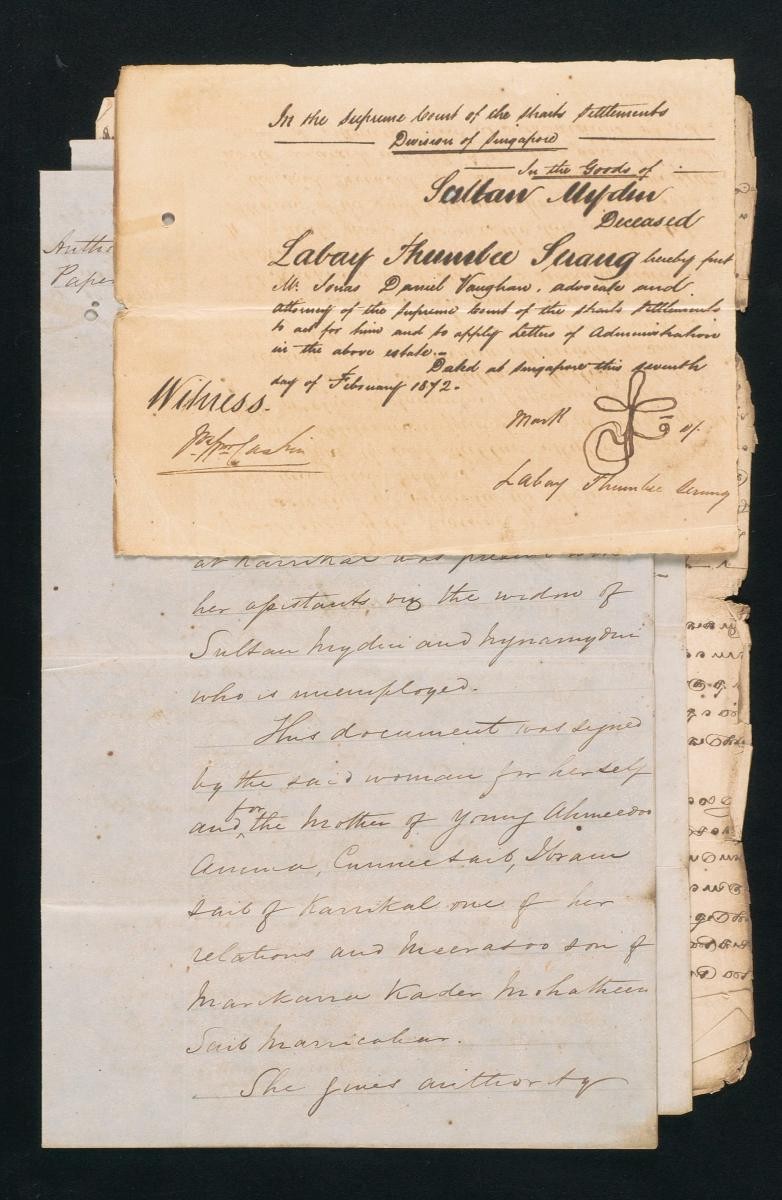 In the Supreme Court of the Straits Settlements
Division of Singapore
In the Goods of
Sultan Mydin
Deceased
Labay Thumbee Serang hereby put
Mr. Jonas Daniel Vaughan, advocate and
Attorney of the Supreme Court of the Straits Settlements
to act for him and to apply Letters of Administration
in the above estate.
Dated at Singapore this seventh
day of February 1872.
Witness.
Mark of
Labay Thumbee Serang
Autho
Paper
at Karrikal was present
her assistants viz the widow of
Sultan Mydin and Nynamydin
who is unemployed.
This document was signed
by the said woman for herself
and for the Mother of young Ahmeedoo
Amma, Cunnee Saib, Ibram
Saib of Karrikal one of her
relations and Meerasoo son of
Marikana Kader Mohatheen
Saib Marricahar.
She gives authority